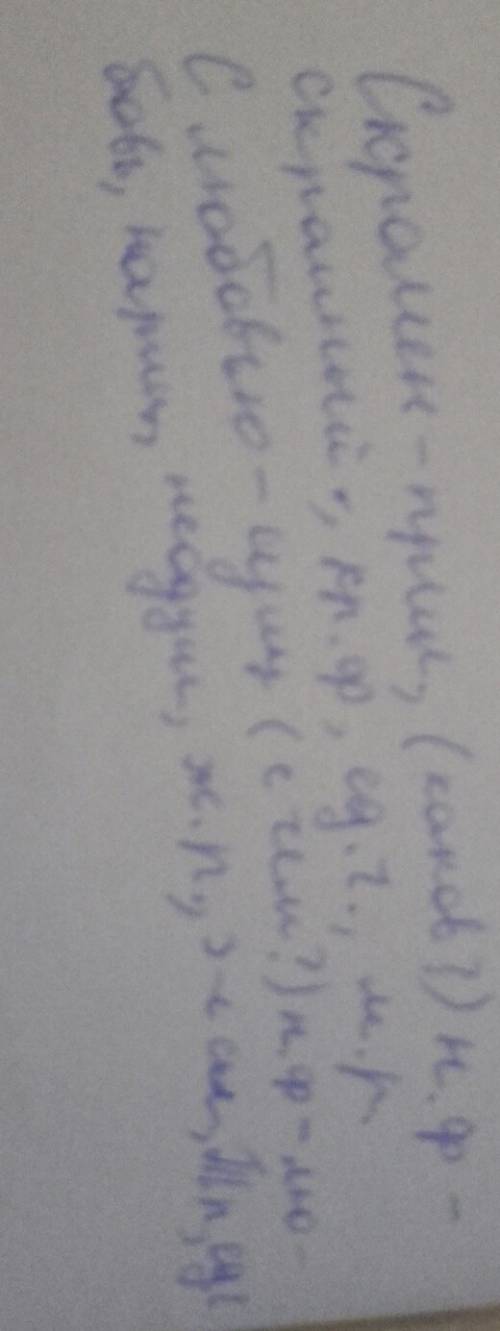 Скромен - прил., (каков?) н.ф -
скромный, кр.ф, ед.ч., м.р.
С любовью - сущ (с чем?) н.ф - лю-
бовь, нариц, неодуш, ж.р., 3-е скл, Тп, ед